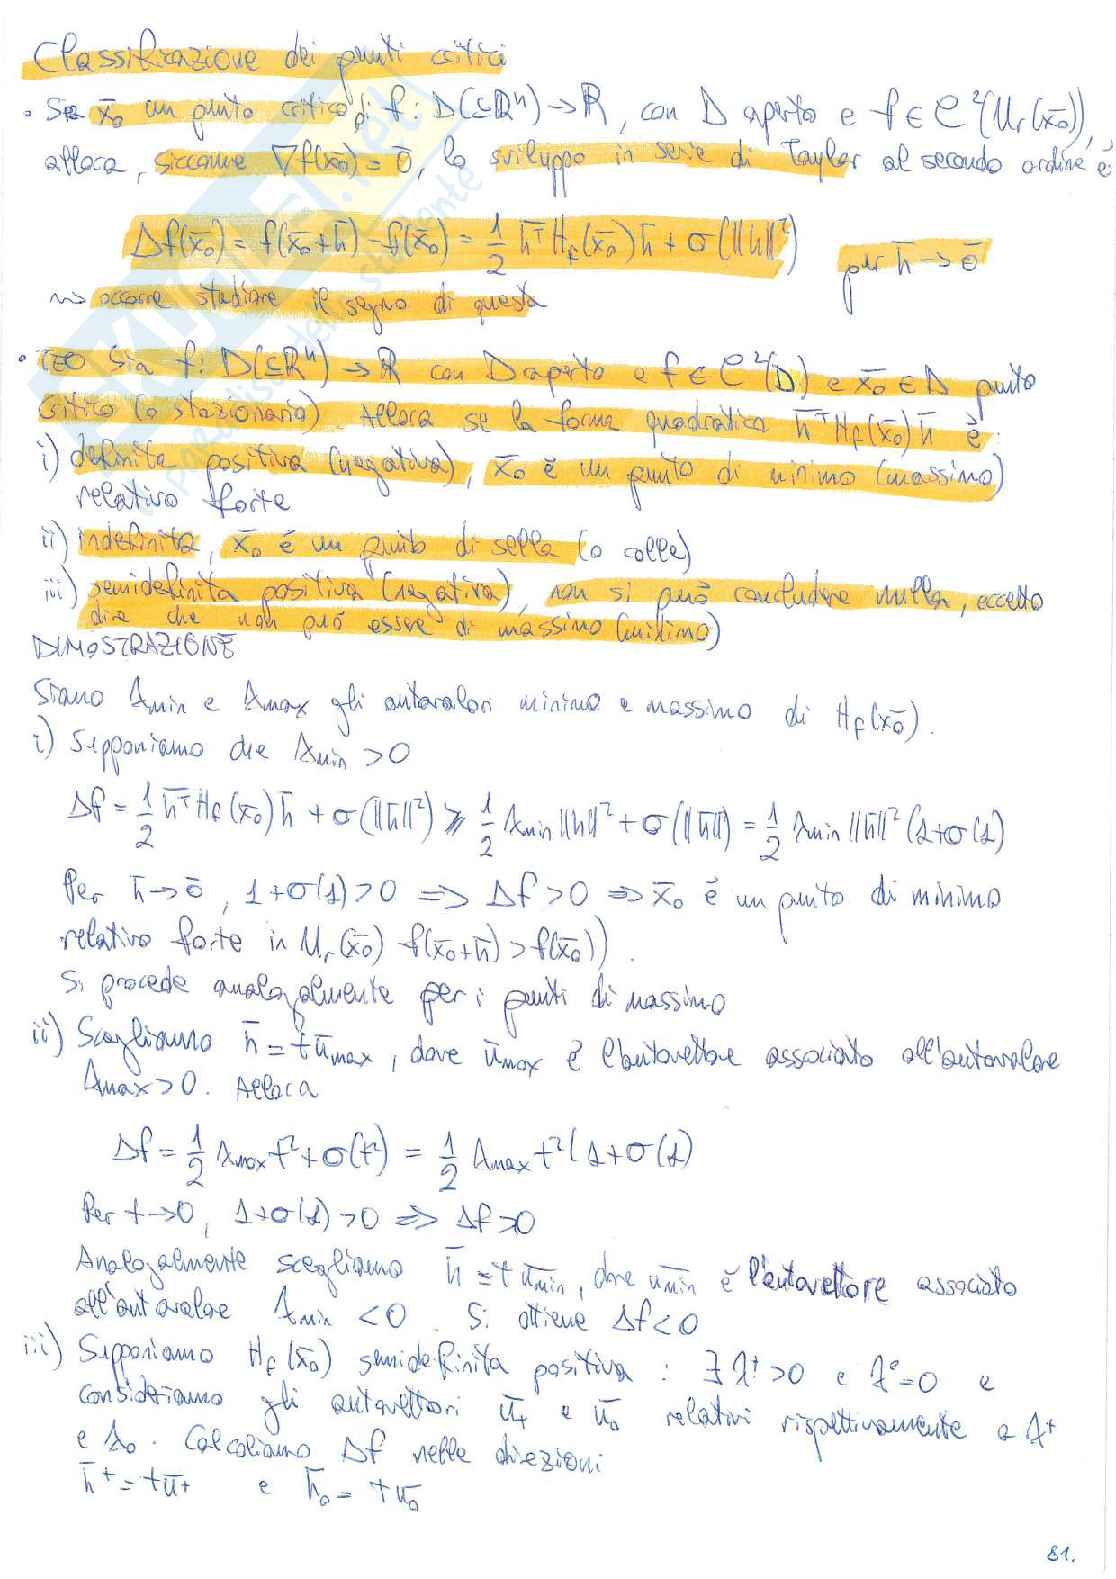 Classificazione dei punti critici
• Sia x̄₀ un punto critico di f: D(⊆ℝⁿ)→ℝ, con D aperto e f∈C²(Uᵣ(x̄₀)),
allora, siccome ∇f(x̄₀)=0̄, lo sviluppo in serie di Taylor al secondo ordine è:
Δf(x̄₀) = f(x̄₀+h̄)-f(x̄₀) = 1/2 h̄ᵀH_f(x̄₀)h̄ + σ(‖h‖²) per h̄→0̄
~> occorre studiare il segno di questa
• TEO Sia f: D(⊆ℝⁿ)→ℝ con D aperto e f∈C²(D) e x̄₀∈D punto
critico (o stazionario). Allora se la forma quadratica h̄ᵀH_f(x̄₀)h̄ è:
i) definita positiva (negativa), x̄₀ è un punto di minimo (massimo)
relativo forte
ii) indefinita, x̄₀ è un punto di sella (o colle)
iii) semidefinita positiva (negativa), non si può concludere nulla, eccetto
dire che non può essere di massimo (minimo)
DIMOSTRAZIONE
Siano λmin e λmax gli autovalori minimo e massimo di H_f(x̄₀).
i) Supponiamo che λmin >0
Δf = 1/2 h̄ᵀH_f(x̄₀)h̄ + σ(‖h̄‖²) ≥ 1/2 λmin‖h‖² + σ(‖h̄‖) = 1/2 λmin‖h̄‖²(1+σ(1)
Per h̄→0̄, 1+σ(1)>0 ⇒ Δf>0 ⇒ x̄₀ è un punto di minimo
relativo forte in Uᵣ(x̄₀) f(x̄₀+h̄)>f(x̄₀)).
Si procede analogalmente per i punti di massimo
ii) Scegliamo h̄=tūmax, dove ūmax è l'autovettore associato all'autovalore
λmax>0. Allora
Δf = 1/2 λmax t²+σ(t²) = 1/2 λmax t²(1+σ(1)
Per t→0, 1+σ(1)>0 ⇒ Δf>0
Analogalmente scegliamo h̄=tūmin, dove ūmin è l'autovettore associato
all'autovalore λmin <0. Si ottiene Δf<0
iii) Supponiamo H_f(x̄₀) semidefinita positiva : ∃ λ⁺>0 e λ°=0 e
consideriamo gli autovettori ū₊ e ū₀ relativi rispettivamente a λ⁺
e λ₀. Calcoliamo Δf nelle direzioni
h̄⁺=tū₊ e h̄₀=tū₀
81.